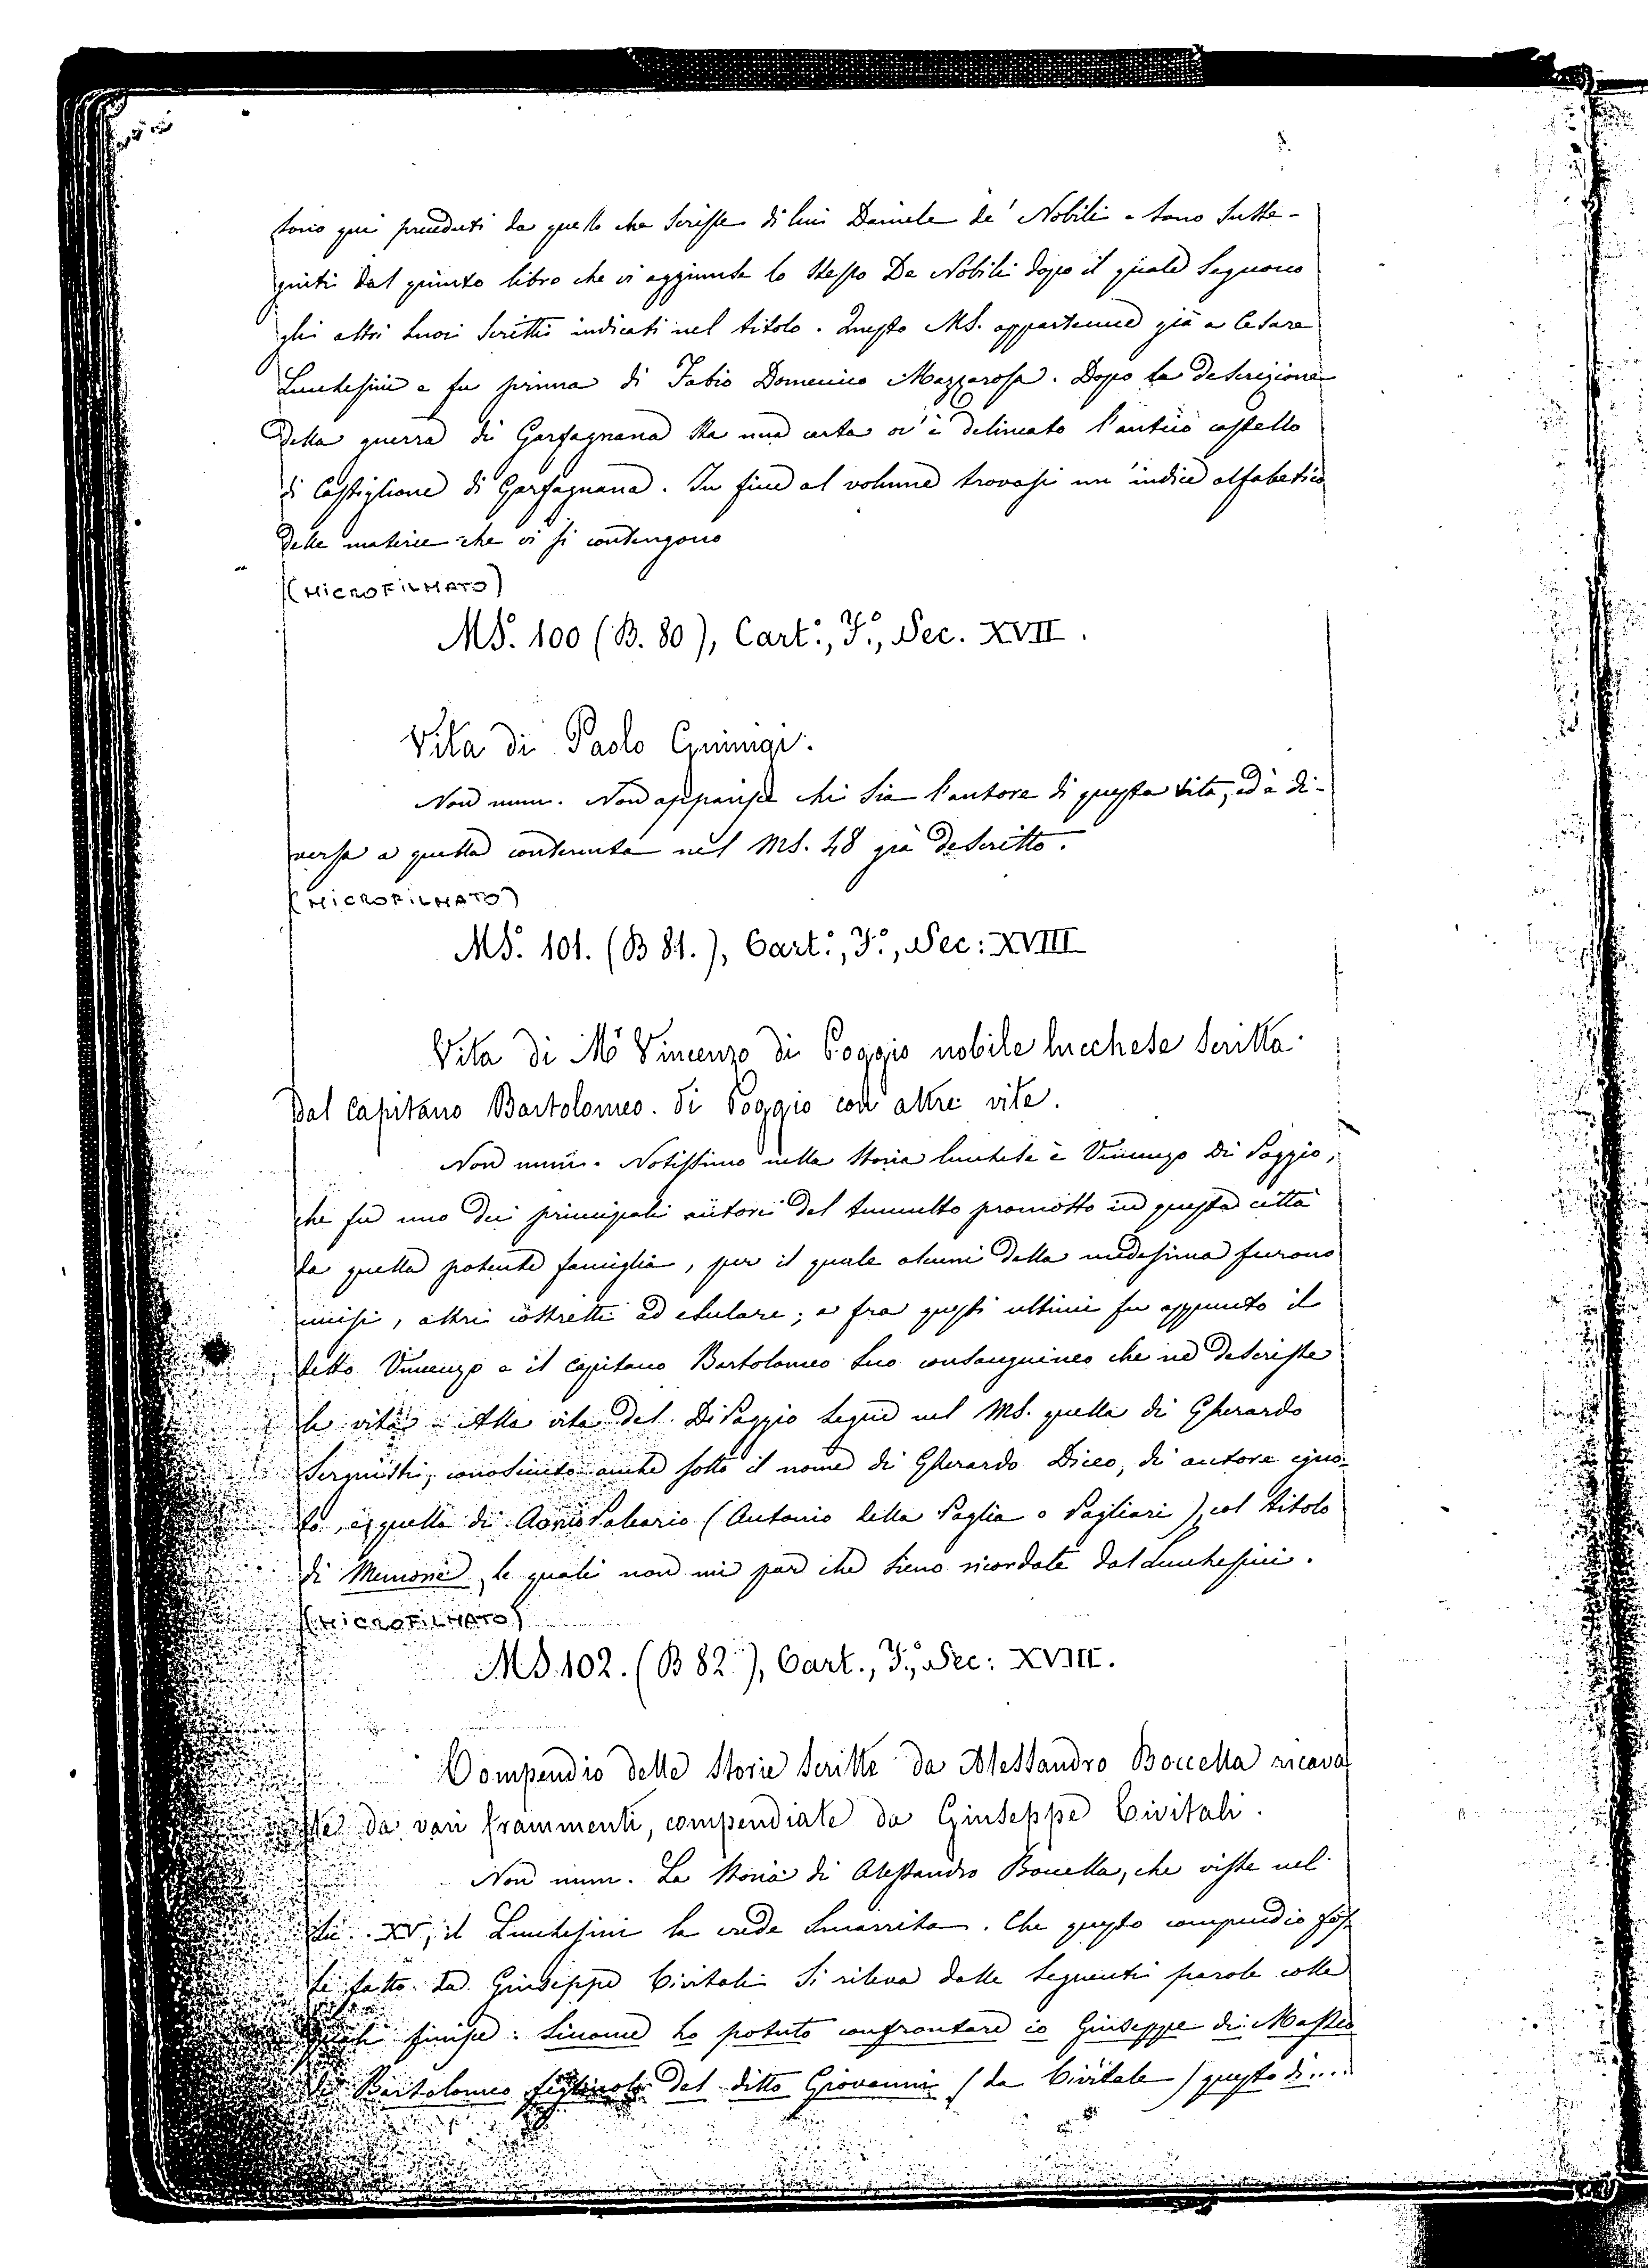 sono qui preceduti da quello che scrisse di lui Daniele de' Nobili e sono susse-
guiti dal quinto libro che vi aggiunse lo stesso De Nobili dopo il quale seguono
gli altri suoi scritti indicati nel titolo. Questo MS. appartenne già a Cesare
Lucchesini e fu prima di Fabio Domenico Mazzarosa. Dopo la descrizione
della guerra di Garfagnana sta una carta ov'è delineato l'antico castello
di Castiglione di Garfagnana. In fine al volume trovasi un indice alfabetico
delle materie che vi si contengono
(MICROFILMATO)
MS. 100 (B. 80), Cart:, F.°, Sec. XVII.
Vita di Paolo Guinigi.
Non num. Non apparisce chi sia l'autore di questa vita, ed è di-
versa a quella contenuta nel MS. 48 già descritto.
(MICROFILMATO)
MS. 101. (B 81.), Cart:, F.°, Sec: XVIII
Vita di Mr Vincenzo di Poggio nobile lucchese scritta
dal Capitano Bartolomeo di Poggio con altre vite.
Non num. Notissimo nella storia lucchese è Vincenzo Di Poggio,
che fu uno dei principali autori del tumulto promosso in questa città
da quella potente famiglia, per il quale alcuni della medesima furono
uccisi, altri costretti ad esulare; e fra questi ultimi fu appunto il
detto Vincenzo e il capitano Bartolomeo suo consanguineo che ne descrisse
la vita. Alla vita del Di Poggio segue nel MS. quella di Gherardo
Sergiusti, conosciuto anche sotto il nome di Gherardo Diceo, di autore igno-
to, e quella di Aonio Paleario (Antonio della Paglia o Pagliari), col titolo
di Memorie, le quali non mi par che sieno ricordate dal Lucchesini.
(MICROFILMATO)
MS. 102. (B 82.), Cart., F.°, Sec: XVIII.
Compendio delle storie scritte da Alessandro Boccella ricava
te da vari frammenti, compendiate da Giuseppe Civitali.
Non num. La storia di Alessandro Boccella, che visse nel
sec. XV, il Lucchesini la crede smarrita. Che questo compendio fos
se fatto da Giuseppe Civitali si rileva dalle seguenti parole colle
quali finisce: Siccome ho potuto confrontare io Giuseppe di Masseo
di Bartolomeo figliuolo del ditto Giovanni (da Civitale) questo dì....